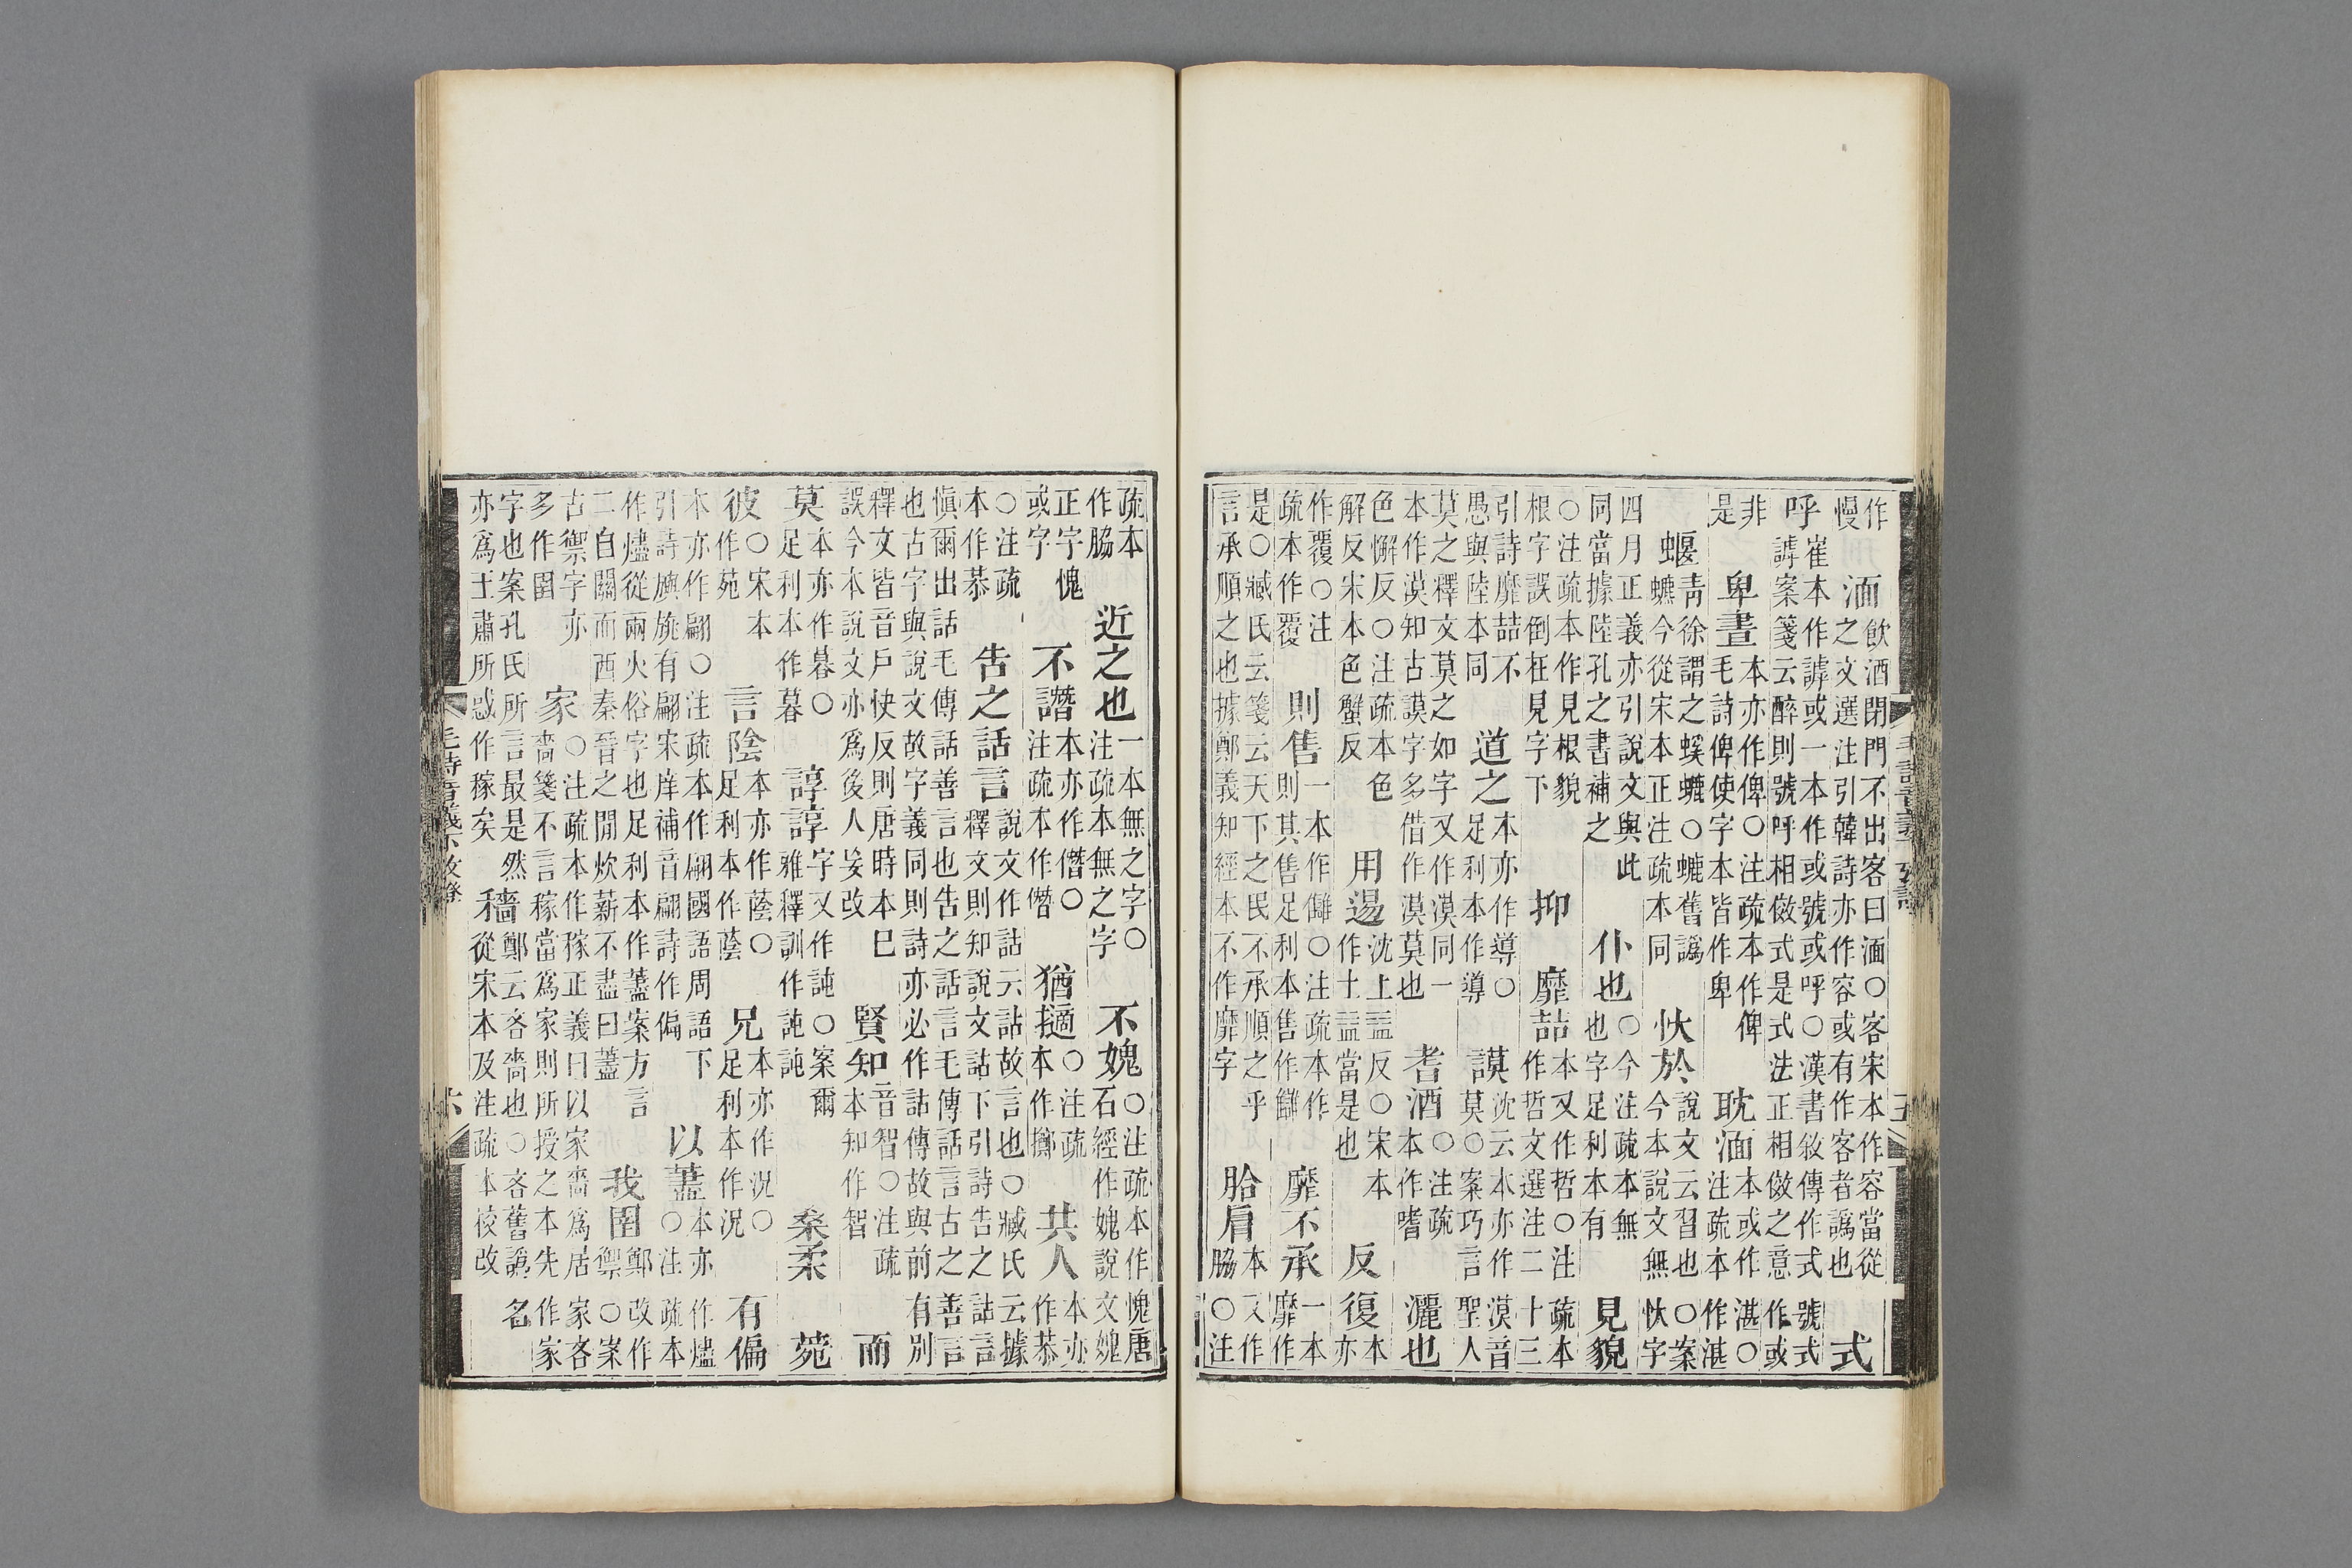 作慢湎飲酒閉門不出客曰湎○客宋本作容當從之文選注引韓詩亦作容或有作客者譌也式
呼崔本作謼或一本作或號或呼○漢書敘傳作式號式謼案箋云醉則號呼相傚式是式法正相傚之意作或
非是卑晝本亦作俾○注疏本作俾毛詩俾使字本皆作卑耽湎本或作湛○注疏本作湛
蝘靑徐謂之螇蠊○蠊舊譌蠊今從宋本正注疏本同忕於說文云習也○案今本說文無忕字
四月正義亦引說文與此同當據陸孔之書補之仆也○今注疏本無也字足利本有見貌
○注疏本作見根貌根字誤倒在見字下抑靡喆本又作哲○注疏本作哲文選注二十三
引詩靡喆不愚與陸本同道之本亦作導○足利本作導謨沈云本亦作漠音莫○案巧言聖人
莫之釋文莫之如字又作漠同一本作漠知古謨字多借作漠莫也耆酒○注疏本作嗜灑也
色懈反○注疏本色解反宋本色蟹反用逷沈上盂反○宋本作土盂當是也反復本亦
作覆○注疏本作覆則售一本作讎○注疏本作則其售足利本售作讎靡不承一本靡作
是○臧氏云箋云天下之民不承順之乎言承順之也據鄭義知經本不作靡字胎肩本又作脇○注
毛詩音義下攷證
五
疏本作脇近之也一本無之字○注疏本無之字不媿○注疏本作愧唐石經作媿說文媿
正字愧或字不譖本亦作僭○注疏本作僭猶擿○注疏本作擲共人本亦作恭
○注疏本作恭告之話言說文作詁云詁故言也○臧氏云據釋文則知說文詁下引詩告之詁言
愼爾出話毛傳話善言也告之話言毛傳話言古之善言也古字與說文故字義同則詩亦必作詁傳故與前有別
釋文皆音戶快反則唐時本已誤今本說文亦爲後人妄改賢知音智○注疏本知作智而
莫本亦作暮○足利本作暮諄諄字又作訰○案爾雅釋訓作訰訰桑柔菀
彼○宋本作苑言陰本亦作蔭○足利本作蔭兄本亦作況○足利本作況有偏
本亦作翩○注疏本作翩國語周語下引詩旟旐有翩宋庠補音翩詩作偏以藎本亦作燼○注疏本
作燼從兩火俗字也足利本作藎案方言二自關而西秦晉之閒炊薪不盡曰藎我圉鄭改作禦○案
古禦字亦多作圉家○注疏本作稼正義曰以家嗇爲居家吝嗇箋不言稼當爲家則所授之本先作家
字也案孔氏所言最是然亦爲王肅所惑作稼矣穡鄭云吝嗇也○吝舊譌名從宋本及注疏本校改
毛詩音義下攷證
六